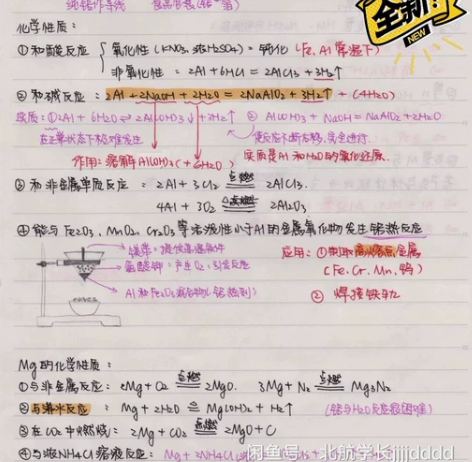 全新!
NEW
化学性质：
①和酸反应 { 氧化性 (KNO₃, 浓H₂SO₄) = 钝化 (Fe, Al 常温下)
非氧化性 = 2Al + 6HCl = 2AlCl₃ + 3H₂↑
②和碱反应：2Al + 2NaOH + 2H₂O = 2NaAlO₂ + 3H₂↑ (4H₂O)
实质：①2Al + 6H₂O = 2Al(OH)₃↓ + 3H₂↑ ② Al(OH)₃ + NaOH = NaAlO₂ + 2H₂O
在正常状态下极难发生 使反应不断右移，完全进行
作用：溶解Al(OH)₃ (+6H₂O) 实质是Al和H₂O的氧化还原.
③和非金属单质反应：2Al + 3Cl₂ 点燃 2AlCl₃.
4Al + 3O₂ 点燃 2Al₂O₃.
④能与Fe₂O₃, MnO₂, Cr₂O₃等活泼性小于Al的金属氧化物发生铝热反应
镁条：提供高温条件
氯酸钾：产生O₂, 引发反应
Al和Fe₂O₃混合物(铝热剂)
应用：①制取高熔点金属
(Fe, Cr, Mn, 钨)
② 焊接铁轨
Mg的化学性质：
①与非金属反应：2Mg + O₂ 点燃 2MgO. 3Mg + N₂ 点燃 Mg₃N₂
②与沸水反应：Mg + 2H₂O = Mg(OH)₂ + H₂↑ (铝与H₂O反应很困难)
③在CO₂中燃烧：2Mg + CO₂ 点燃 2MgO + C
④与浓NH₄Cl溶液反应：Mg + 2NH₄Cl
闲鱼号：北航学长jjjjdddd